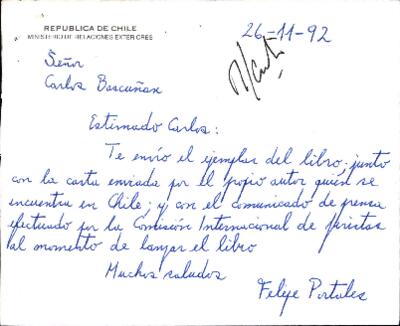 REPUBLICA DE CHILE
MINISTERIO DE RELACIONES EXTERIORES
26-11-92
Señor
Carlos Bascuñan
Estimado Carlos:
Te envío el ejemplar del libro, junto
con la carta enviada por el propio autor quién se
encuentra en Chile; y con el comunicado de prensa
efectuado por la Comisión Internacional de juristas
al momento de lanzar el libro
Muchos saludos
Felipe Portales